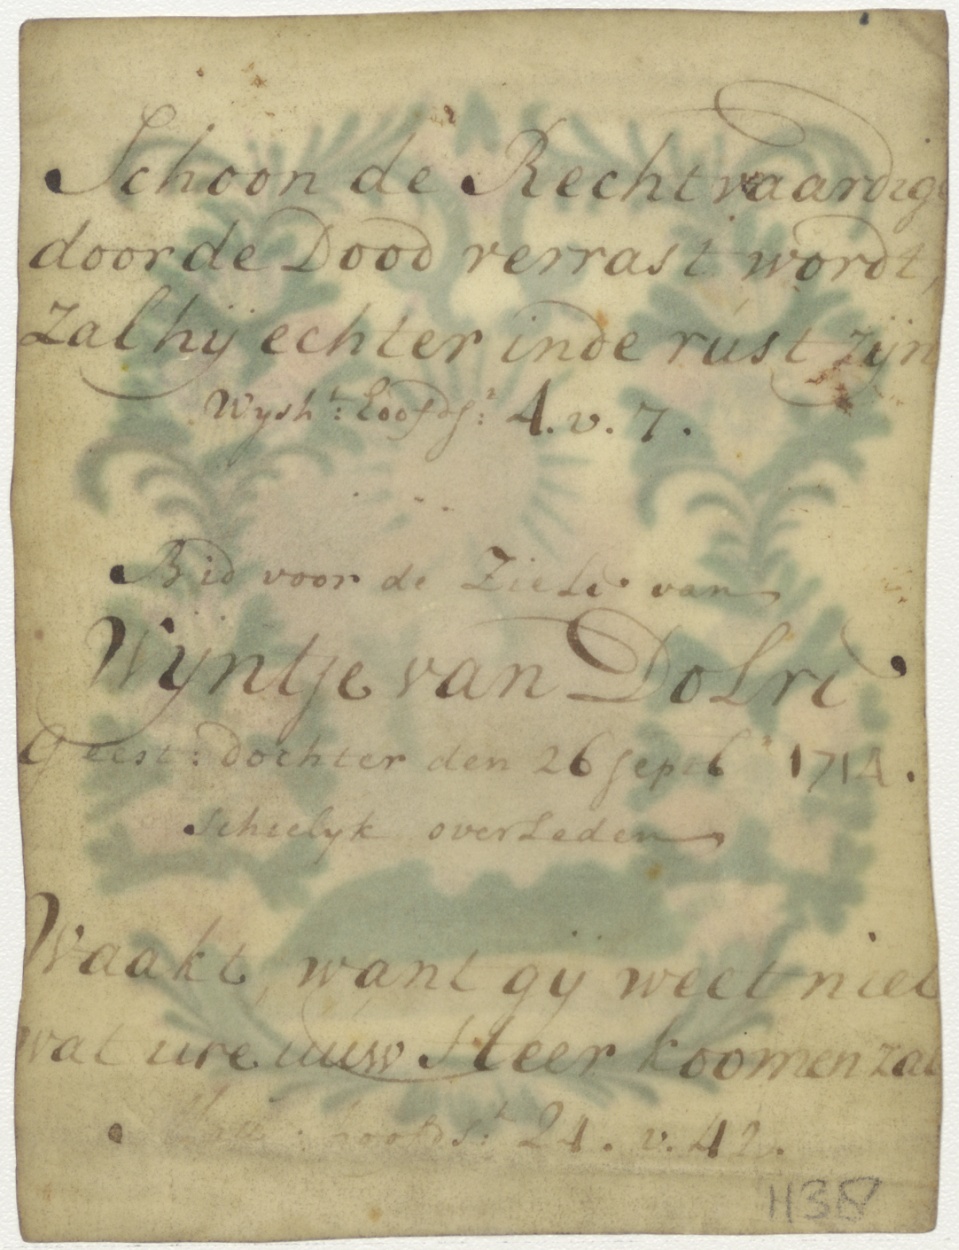 Schoon de Rechtvaardige
door de Dood verrast wordt,
Zal hij echter in de rust zijn
Wysh.t: hoofds.t: 4. v. 7.
Bid voor de Ziele van
Wijntje van Dolre
Geest: dochter den 26 sept.6.r 1714.
schielyk overleden
Waakt, want gij weet niet
wat ure uuw Heer koomen zal
hoofds.t: 24. v. 42.
1138